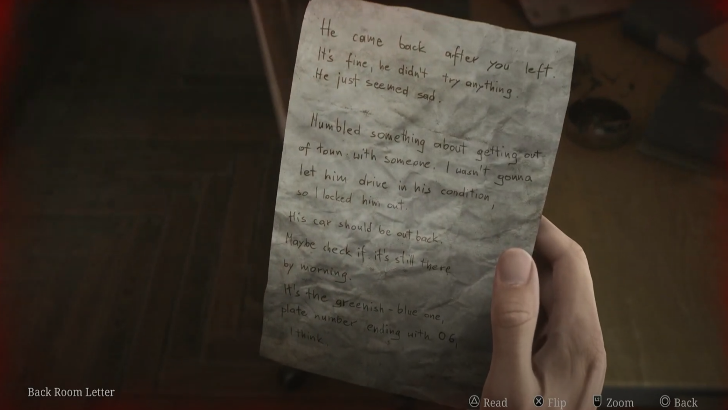 He came back after you left.
It's fine, he didn't try anything.
He just seemed sad.
Mumbled something about getting out
of town with someone. I wasn't gonna
let him drive in his condition,
so I locked him out.
His car should be out back.
Maybe check if it's still there
by morning.
It's the greenish-blue one,
plate number ending with OG,
I think.
Back Room Letter
Read Flip Zoom Back